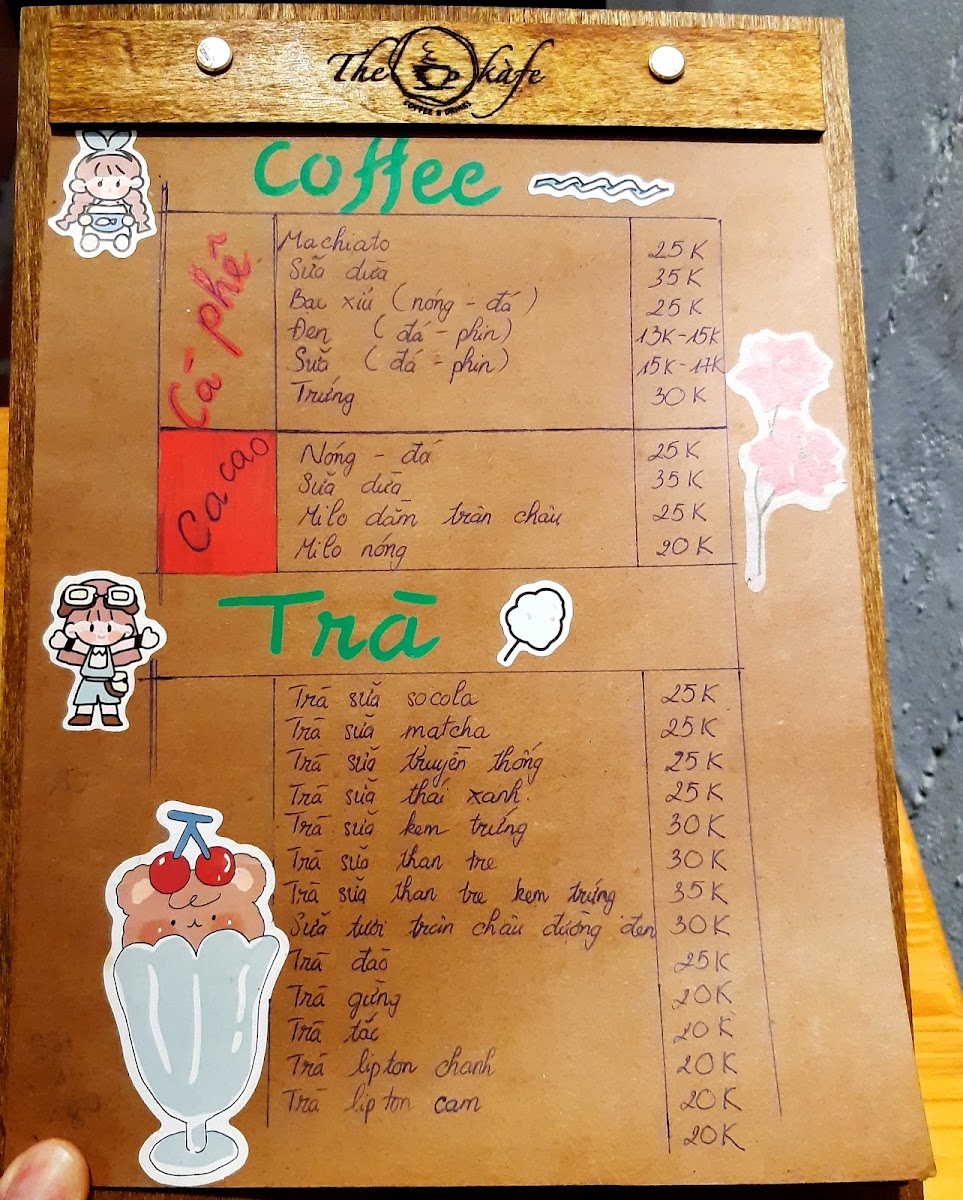 The kàfe
COFFEE & DRINKS
Coffee
Cà phê
Machiato 25K
Sữa dừa 35K
Bạc xỉu (nóng - đá) 25K
Đen (đá - phin) 13K-15K
Sữa (đá - phin) 15K-17K
Trứng 30K
Cacao
Nóng - đá 25K
Sữa dừa 35K
Milo dầm trân châu 25K
Milo nóng 20K
Trà
Trà sữa socola 25K
Trà sữa matcha 25K
Trà sữa truyền thống 25K
Trà sữa thái xanh 25K
Trà sữa kem trứng 30K
Trà sữa than tre 30K
Trà sữa than tre kem trứng 35K
Sữa tươi trân châu đường đen 30K
Trà đào 25K
Trà gừng 20K
Trà tắc 20K
Trà lipton chanh 20K
Trà lipton cam 20K
20K